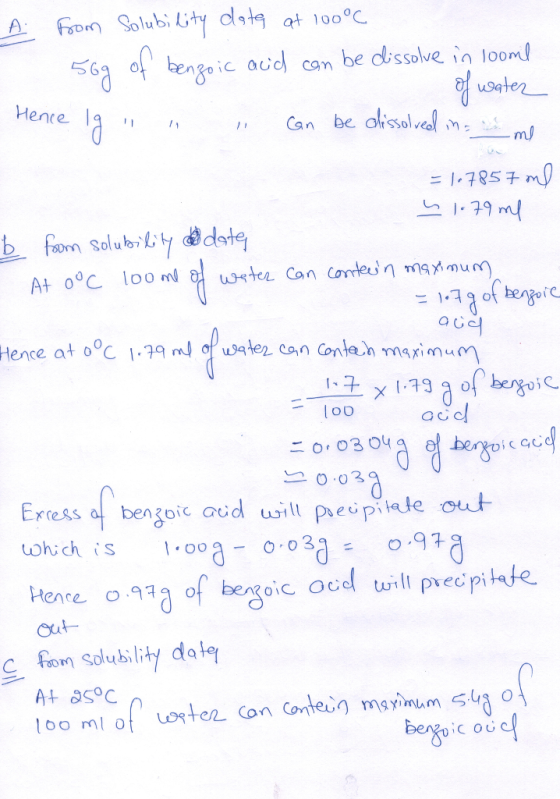 A. From Solubility data at 100°C
56g of benzoic acid can be dissolve in 100ml
of water
Hence 1g " " " Can be dissolved in = ___ ml
= 1.7857 ml
≃ 1.79 ml
b from solubility data
At 0°C 100 ml of water can contain maximum
= 1.7g of benzoic
acid
Hence at 0°C 1.79 ml of water can contain maximum
= 1.7/100 × 1.79 g of benzoic
acid
= 0.0304g of benzoic acid
≃ 0.03g
Excess of benzoic acid will precipitate out
which is 1.00g - 0.03g = 0.97g
Hence 0.97g of benzoic acid will precipitate
out
C from solubility data
At 25°C
100 ml of water can contain maximum 5.4g of
benzoic acid